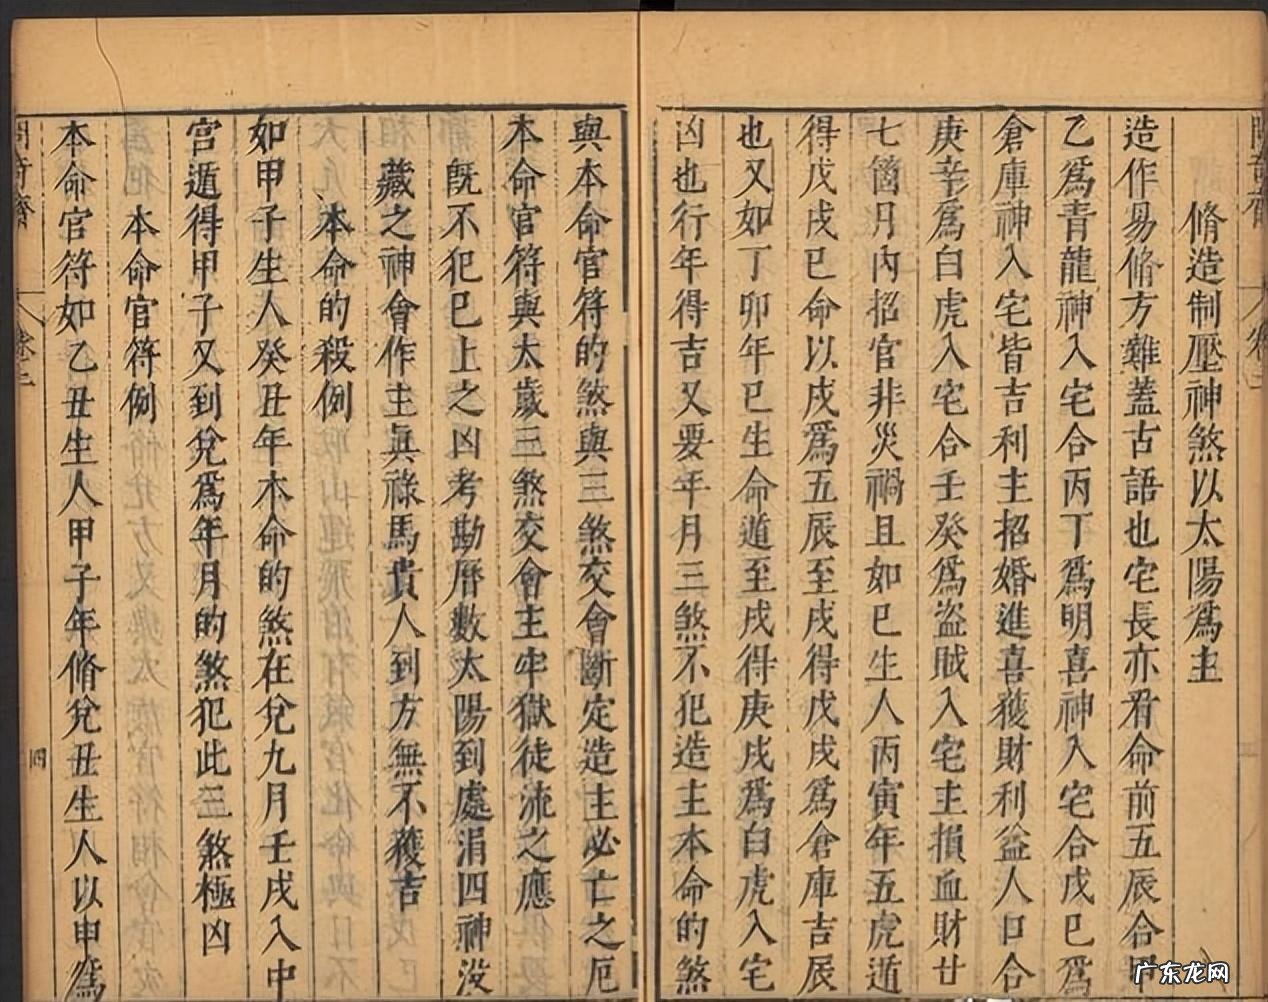 脩造制壓神煞以太陽爲主
造作易脩方難蓋古語也宅長亦看命前五辰合甲
乙爲青龍神入宅合丙丁爲明喜神入宅合戊巳爲
倉庫神入宅皆吉利主招婚進喜獲財利益人口合
庚辛爲白虎入宅合壬癸爲盗賊入宅主損血財廿
七箇月內招官非災禍且如巳生人丙寅年五虎遁
得戊戌巳命以戌爲五辰至戌得戊戌爲倉庫吉辰
也又如丁卯年巳生命遁至戌得庚戌爲白虎入宅
凶也行年得吉又要年月三煞不犯造主本命的煞
與本命官符的煞與三煞交會斷定造主必亡之厄
本命官符與太歲三煞交會主牢獄徒流之應
旣不犯巳上之凶考勘曆數太陽到處涓四神没
藏之神會作主眞祿馬貴人到方無不獲吉
本命的殺例
如甲子生人癸丑年本命的煞在兌九月壬戌入中
宫遁得甲子又到兌爲年月的煞犯此三煞極凶
本命官符例
本命官符如乙丑生人甲子年脩兌丑生人以申爲
卷二
四
广东龙网